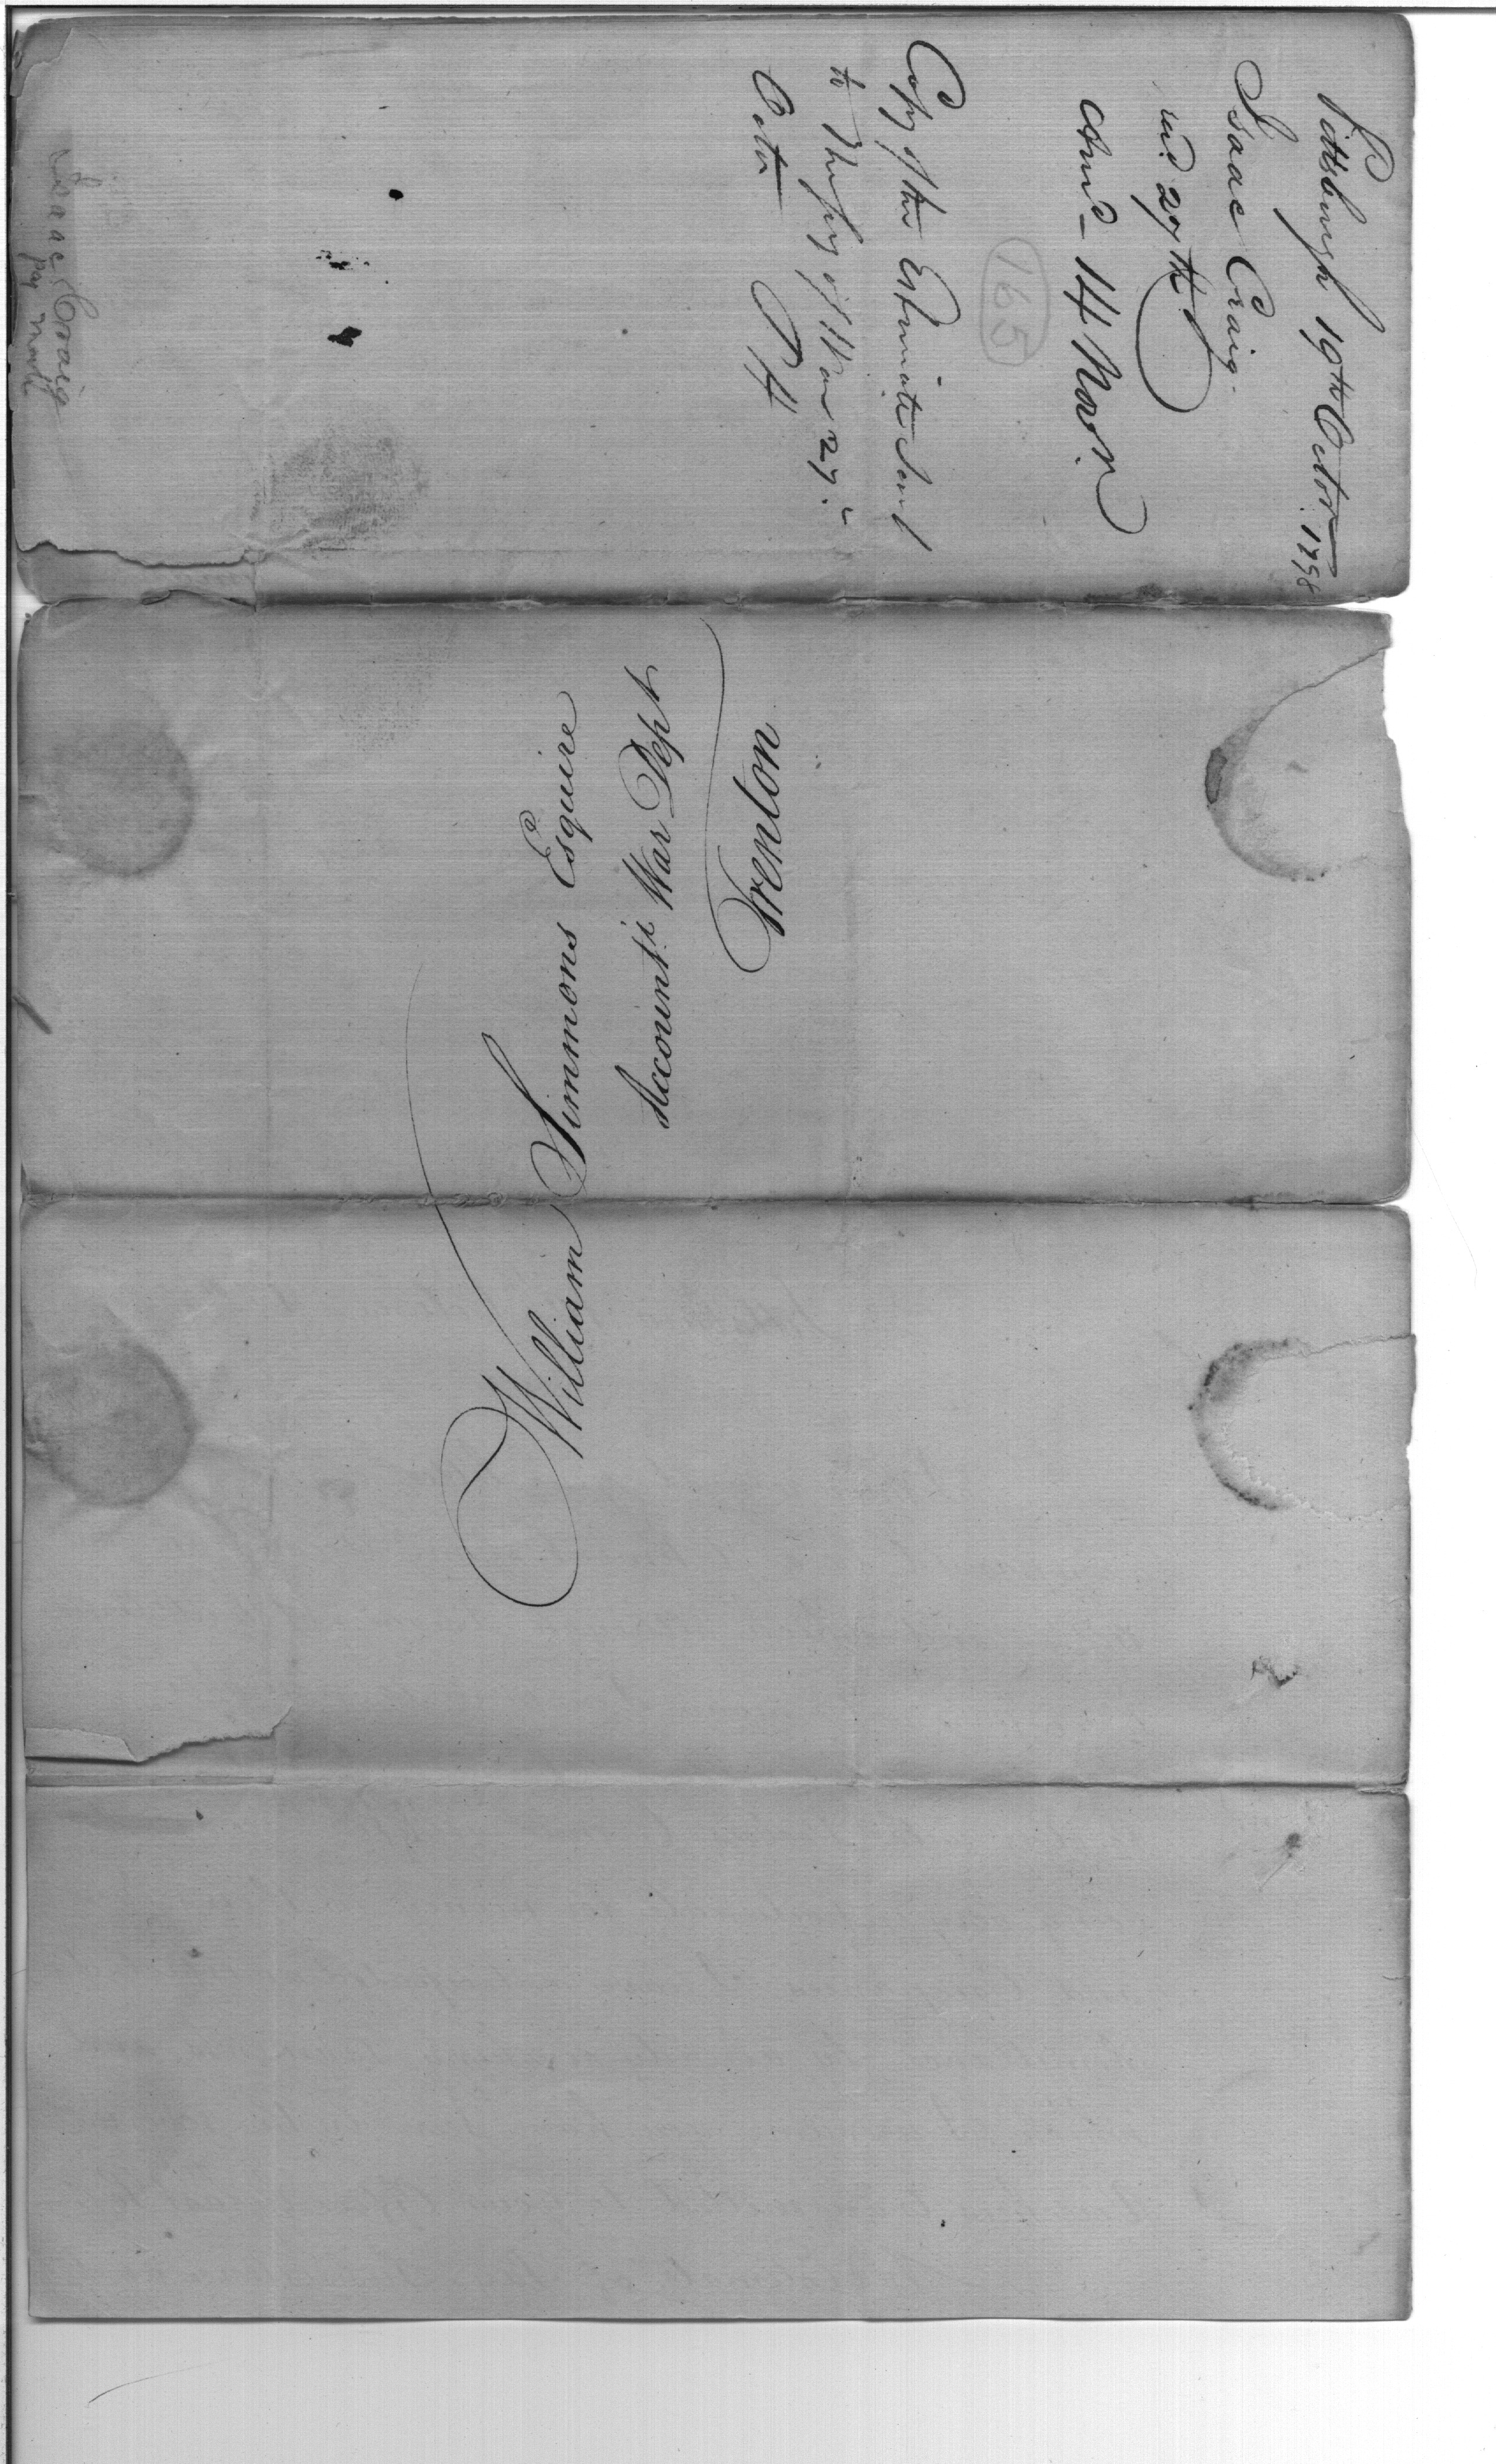 Pittsburgh 19th Octor. 1798
Isaac Craig
recd 29th
Ansd - 14 Novr.
165
Copy of the Estimate sent
to the Secy of War 29.
Octor
William Simmons Esquire
Accountt War Dept
Trenton
Isaac Craig